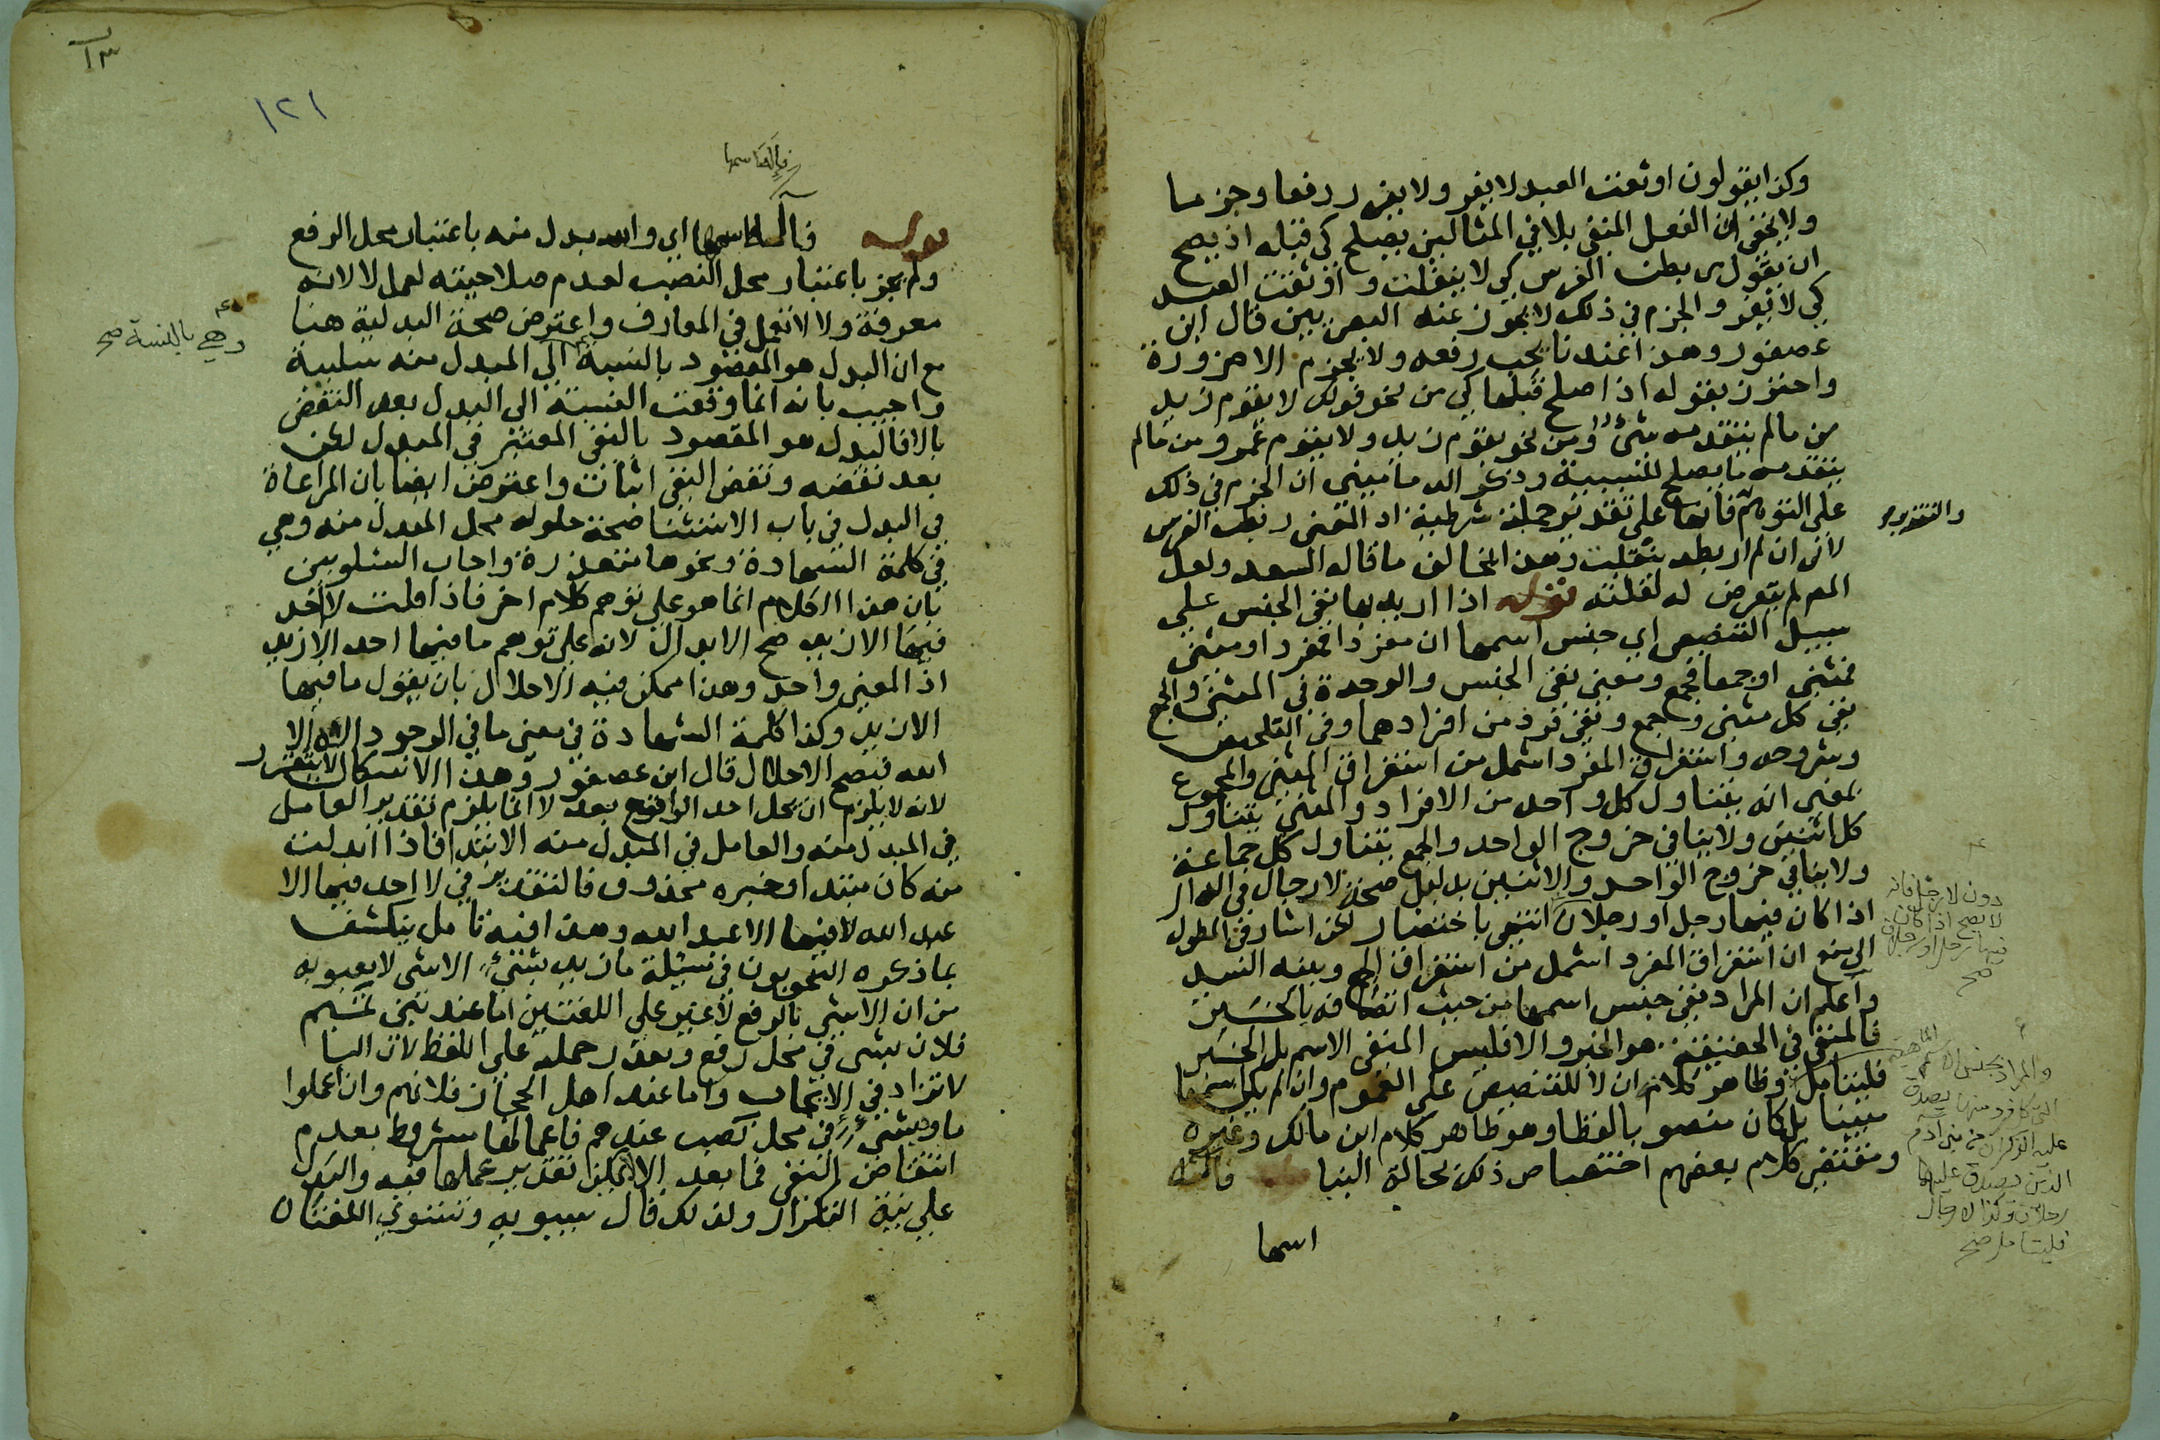 وكذا يقولون اوثقت العبد لا يفر ولا يفر رفعا وجزما
ولا يخفى ان الفعل المنفي بلا في المثالين يصلح كي قبله اذ يصح
ان يقول ربطت الفرس كي لا ينفلت و اوثقت العبد
كي لا يفر والجزم في ذلك لا يجوز عند البصريين قال ابن
عصفور وهذا عندنا يجب رفعه ولا يجزم الا ضرورة
واحترز بقوله اذا صلح قبلها كي من نحو قولك لا يقوم زيد
من مالم يتقدمه شيء ومن نحو يقوم زيد ولا يقوم عمرو من مالم
يتقدمه ما يصلح للسببية وذكر الدماميني ان الجزم في ذلك
على التوهم فانها على تقدير جملة شرطية اذ المعنى ربطت الفرس
والتقدير
لاني ان لم اربطه ينفلت وهذا مخالف ما قاله السعد ولعل
المص لم يتعرض له لقلته قوله اذا اريد بها نفي الجنس على
سبيل التنصيص اي جنس اسمها ان مفردا فمفرد او مثنى
فمثنى او جمعا فجمع ومعنى نفي الجنس والوحدة في المثنى والجمع
نفي كل مثنى وجمع ونفي فرد من افرادهما وفي التلخيص
وشروحه واستغراق المفرد اشمل من استغراق المثنى والمجموع
بمعنى انه يتناول كل واحد من الافراد والمثنى يتناول
كل اثنين ولا ينافي خروج الواحد والجمع يتناول كل جماعة
ولا ينافي خروج الواحد والاثنين بدليل صحة لا رجال في الدار
اذا كان فيها رجل او رجلان انتهى باختصار لكن اشار في المطول
دون لا رجل فانه
لا يصح اذا كان
فيها رجل او رجلان
صح
الى منع ان استغراق المفرد اشمل من استغراق الجمع وبينه السيد
واعلم ان المراد بنفي جنس اسمها من حيث اتصافه بالخبر
فالمنفي في الحقيقة هو الخبر والا فليس المنفي الاسم بل الخبر
فليتامل وظاهر كلامه ان لا للتنصيص على العموم وان لم يكن اسمها
مبينا بل كان منصوبا لفظا وهو ظاهر كلام ابن مالك وغيره
ومقتضى كلام بعضهم اختصاص ذلك بحالة البنا
والمراد بجنس الاسم الماهية
عليه الذكران من بني آدم
رجلان وكذا لا رجال
فليتامل صح
اسمها
١٢١
قوله فالله اسمها اي والله بدل منه باعتبار محل الرفع
ولم يجز باعتبار محل النصب لعدم صلاحيته لعمل لا لانه
معرفة ولا لا تعمل في المعارف واعترض صحة البدلية هنا
مع ان البدل هو المقصود بالنسبة الى المبدل منه سلبية
وهي بالنسبة صح
واجيب بانه انما وقعت النسبة الى البدل بعد النقض
بالا فالبدل هو المقصود بالنفي المعتبر في المبدل لكن
بعد نقضه ونقض النفي اثبات واعترض ايضا بان المراعاة
في البدل في باب الاستثنا صحة حلوله محل المبدل منه وهي
في كلمة الشهادة ونحوها متعذرة واجاب الشلوبين
بان هذا الكلام انما هو على توهم كلام اخر فاذا قلت لا احد
فيها الا زيد صح الابدال لانه على توهم ما فيها احد الا زيد
اذ المعنى واحد وهذا ممكن فيه الاحلال بان يقول ما فيها
الا زيد وكذا كلمة الشهادة في معنى ما في الوجود اله الا
الله فيصح الاحلال قال ابن عصفور وهذا الاشكال لا يتقرر
لانه لا يلزم ان يحل احد الواقع بعد لا انما يلزم تقدير العامل
في المبدل منه والعامل في المبدل منه الابتدا فاذا ابدلت
منه كان مبتدا وخبره محذوف فالتقدير في لا احد فيها الا
عبد الله لا فيها الا عبد الله وهذا فيه تامل ينكشف
بما ذكره النحويون في مسئلة ما زيد بشيء الا شي لا يعبو به
من ان الا شي بالرفع لا غير على اللغتين اما عند بني تميم
فلان بشي في محل رفع وبعد رحمله على اللفظ لان البا
لا تزاد في الايجاب واما عند اهل الحجاز فلانهم وان اعملوا
ما وبشي في محل نصب عندهم فاعمالها مشروط بعدم
انتقاض النفي فما بعد الا لا يمكن تقدير عملها فيه والبدل
على نية التكرار ولذلك قال سيبويه وتستوي اللغتان